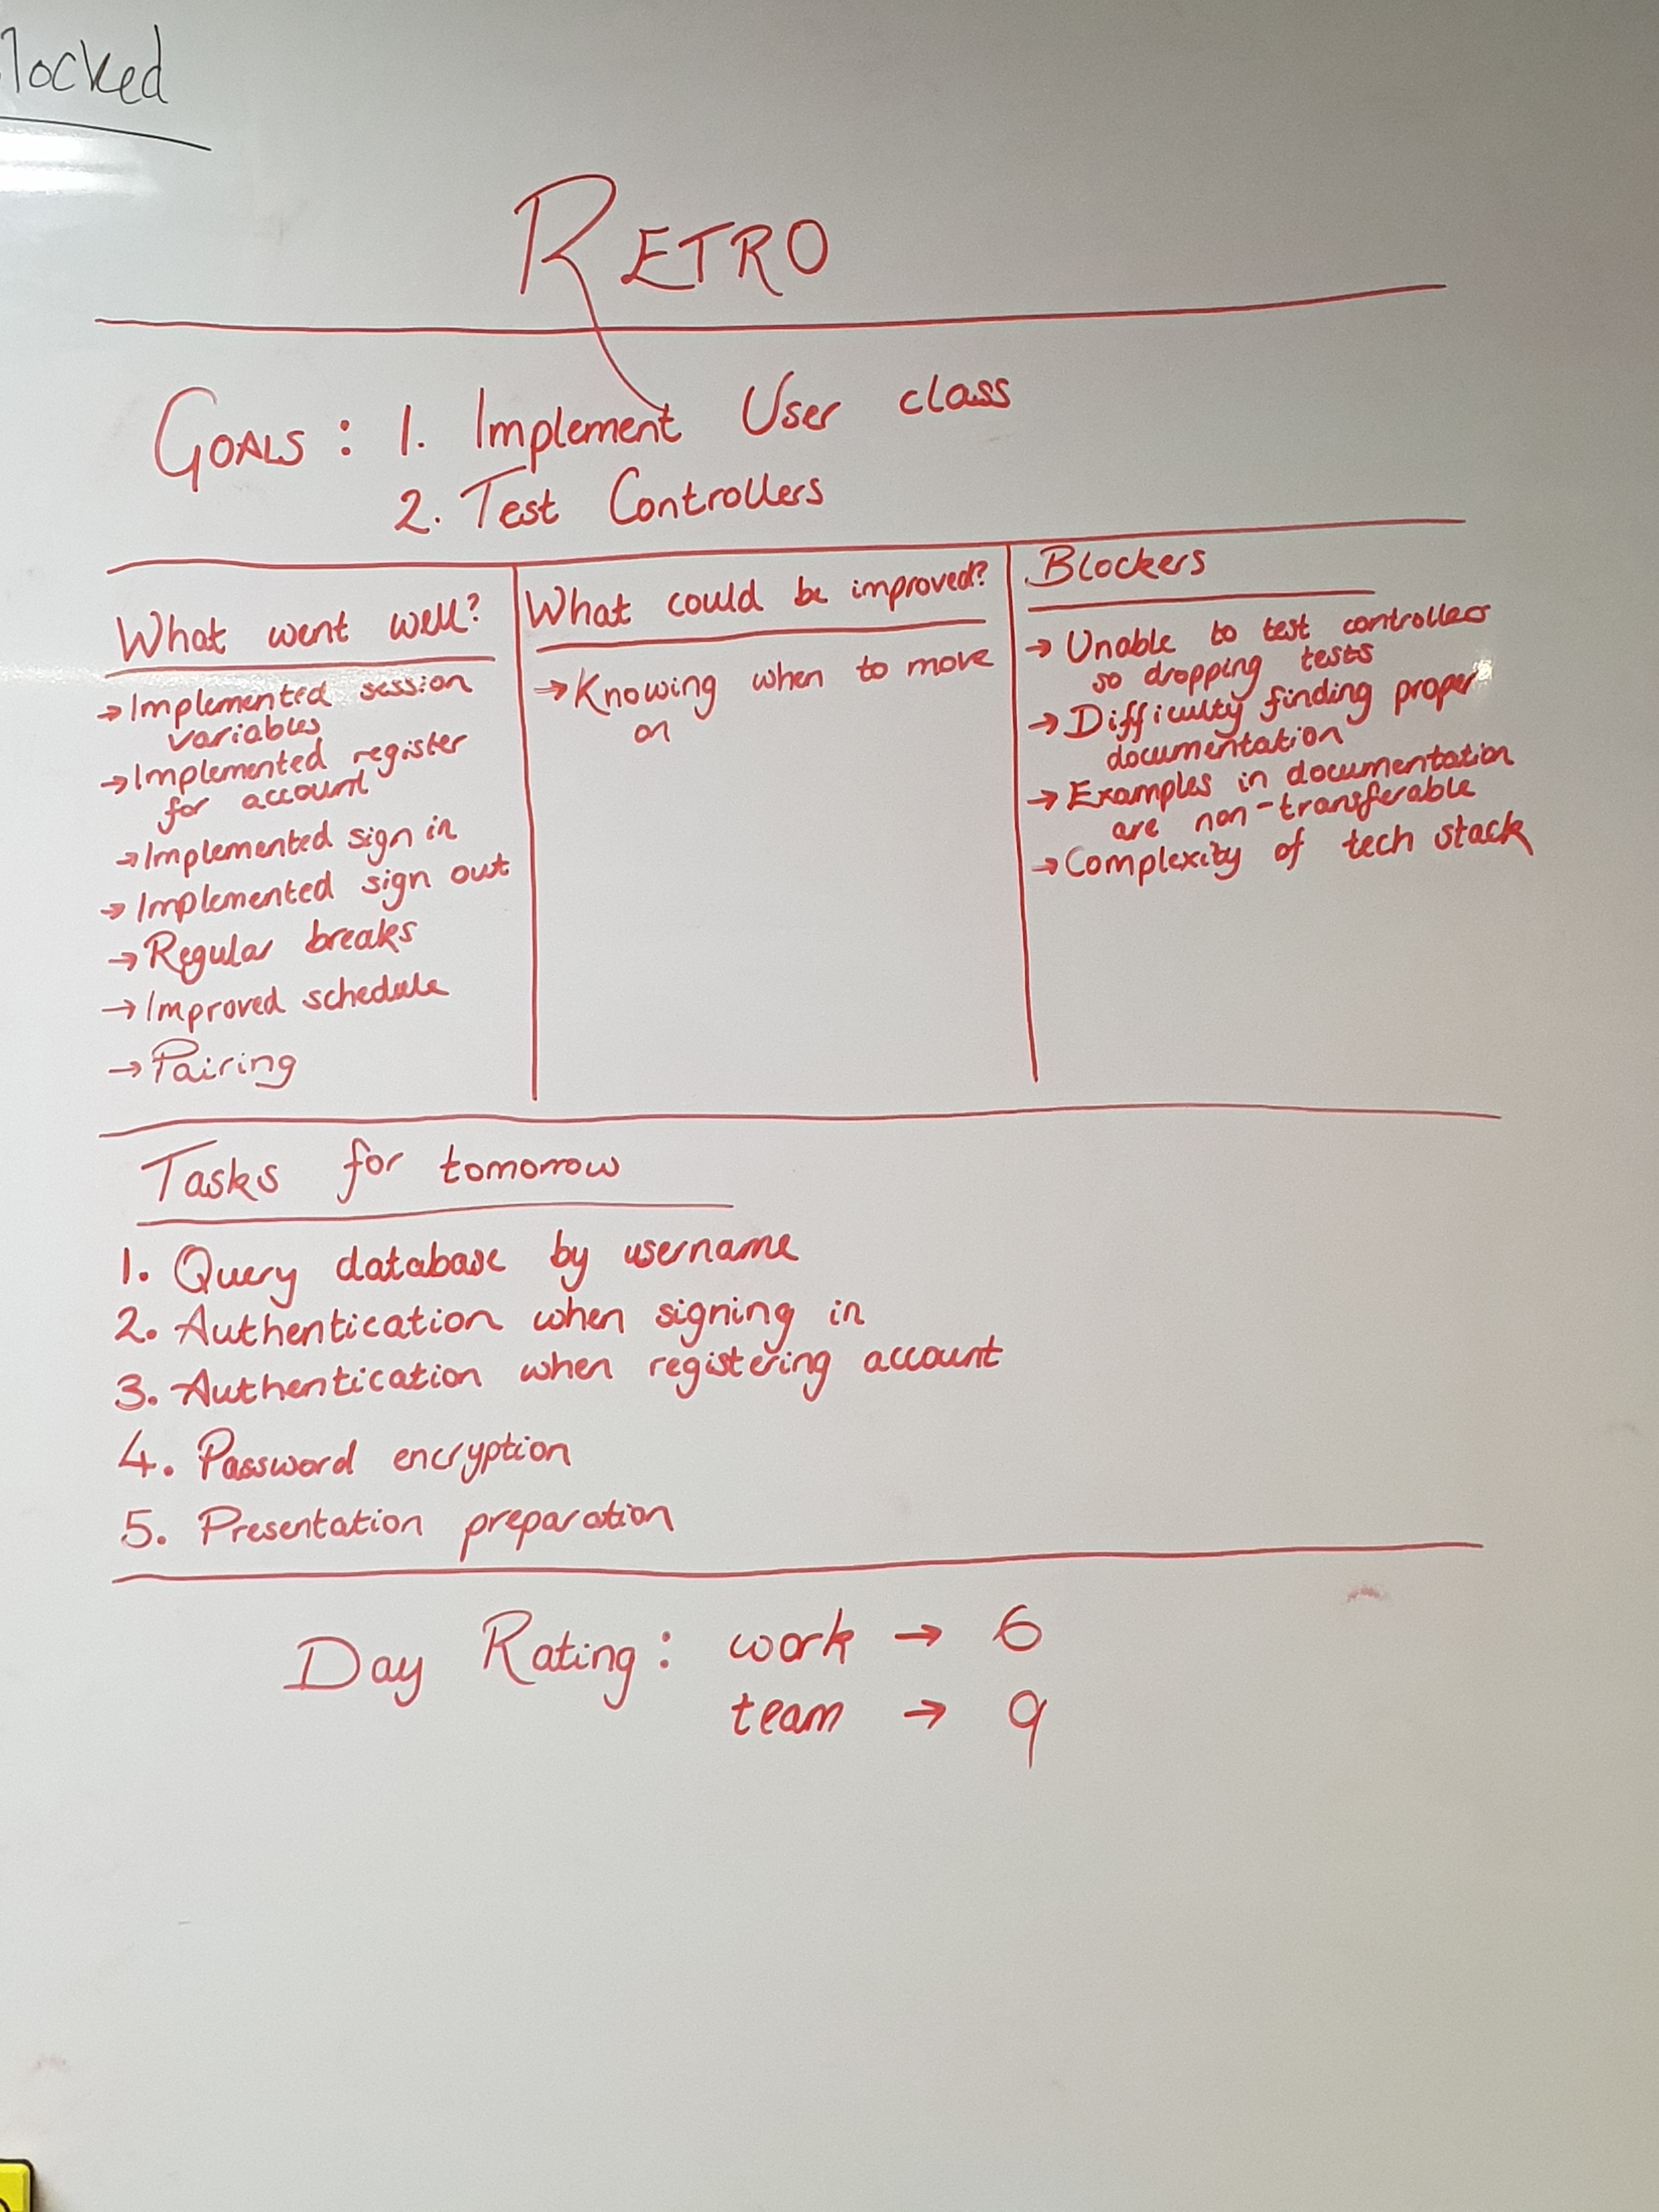 locked
RETRO
GOALS: 1. Implement User class
2. Test Controllers
What went well?
→ Implemented session
variables
→ Implemented register
for account
→ Implemented sign in
→ Implemented sign out
→ Regular breaks
→ Improved schedule
→ Pairing
What could be improved?
→ Knowing when to move
on
Blockers
→ Unable to test controllers
so dropping tests
→ Difficulty finding proper
documentation
→ Examples in documentation
are non-transferable
→ Complexity of tech stack
Tasks for tomorrow
1. Query database by username
2. Authentication when signing in
3. Authentication when registering account
4. Password encryption
5. Presentation preparation
Day Rating: work → 6
team → 9